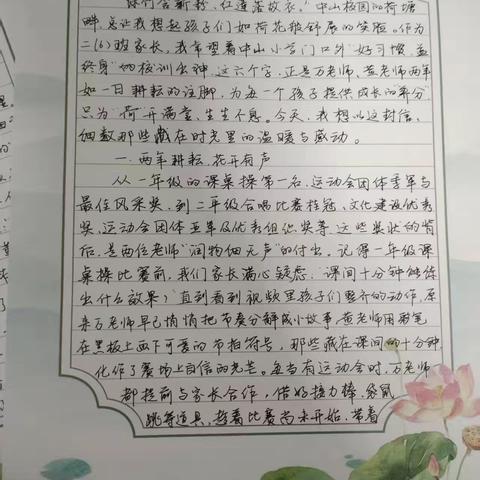 绿竹含新粉，红莲落故衣。"中山校园的荷塘
畔，总让我想起孩子们如荷花般舒展的笑脸。作为
二(6)班家长，我常望着中山小学门口外"好习惯，益
终身"的校训出神，这六个字，正是万老师、黄老师两年
如一日耕耘的注脚，为每一个孩子提供成长的养分，
只为"荷"开满堂，生生不息。今天，我想以这封信，
细数那些藏在时光里的温暖与感动。
一、两年耕耘，花开有声
从一年级的课桌操第一名，运动会团体季军与
最佳风采奖，到二年级合唱比赛桂冠、文化建设优秀
奖、运动会团体亚军及优秀组织奖等，这些奖状的背
后，是两位老师"润物细无声"的付出。记得一年级课
桌操比赛前，我们家长满心疑虑："课间十分钟能练
出什么效果？"直到看到视频里孩子们整齐的动作，原
来万老师早已悄悄把节奏分解成小故事，黄老师用彩笔
在黑板上画下可爱的节拍符号，那些藏在课间的十分钟，
化作了赛场上自信的光芒。每当有运动会时，万老师
都提前与家长合作，借好接力棒、袋鼠
跳等道具，趁着比赛尚未开始，带着